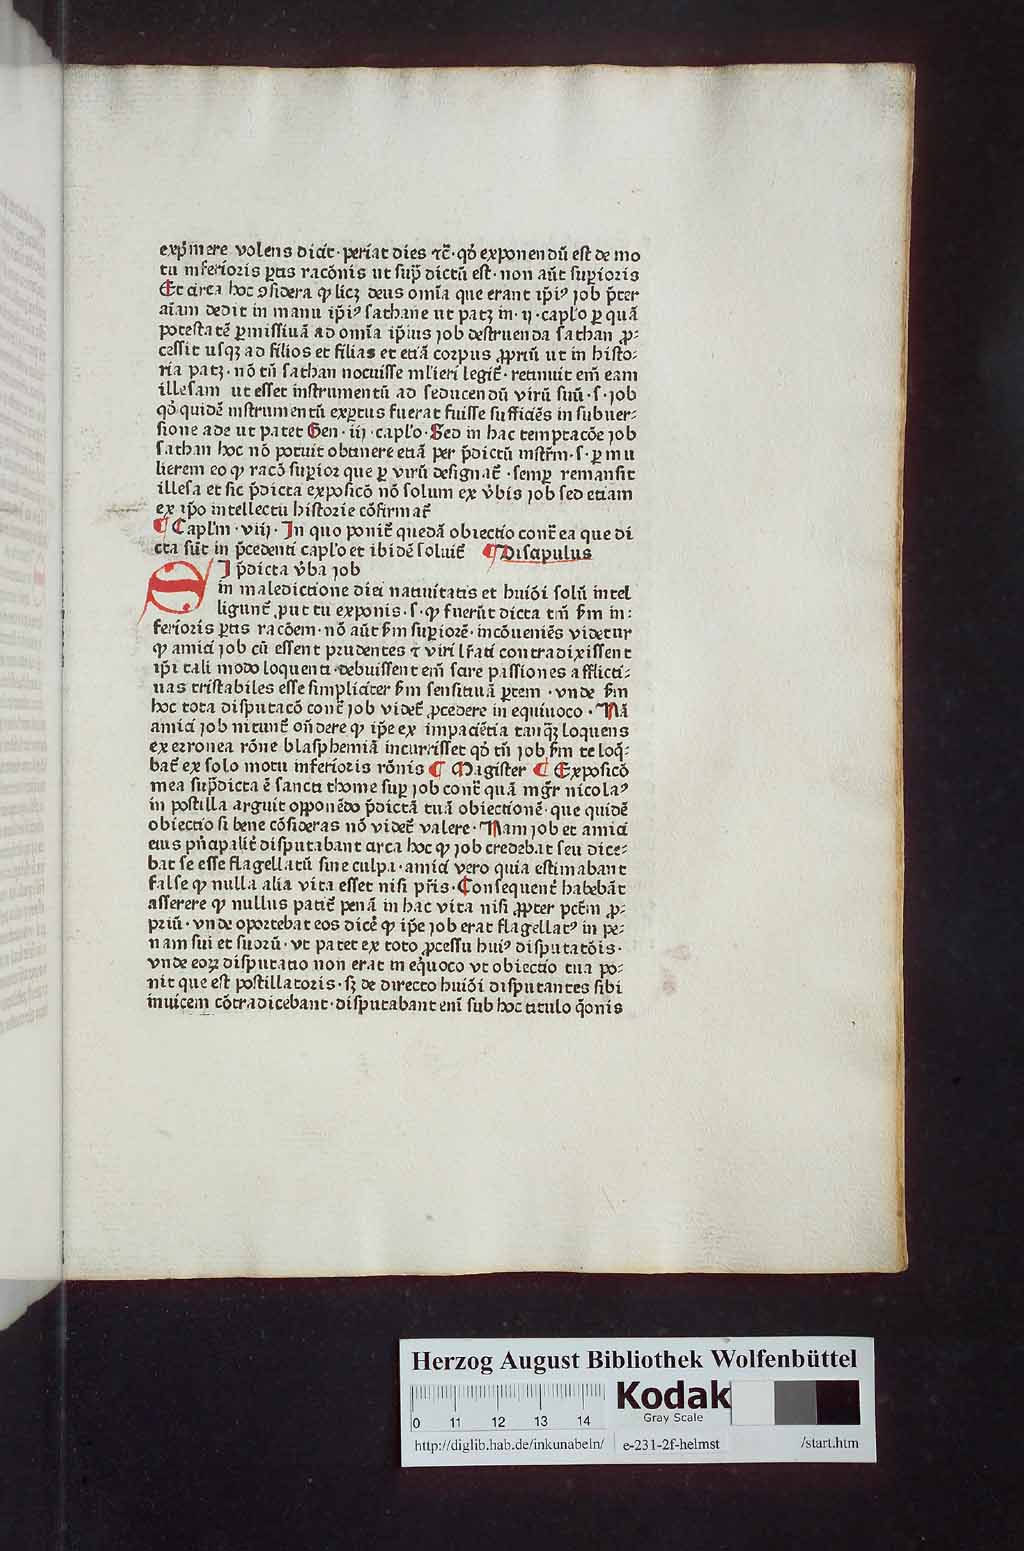 exp̄mere volens dicit · periat dies ⁊c̄ · qd̓ exponendū est de mo
tu inferioris ꝑtis racōnis ut sup̄ dictū est · non aūt suꝑioris
Et circa hoc ꝯsidera ꝙ licꝫ deus om̄ia que erant ip̄iꝰ job p̄ter
aīam dedit in manu ip̄iꝰ sathane ut patꝫ in · ij · capl̓o ꝑ quā
potestatē ꝑmissiuā ad om̄ia ip̄ius job destruenda sathan ꝓ-
cessit usqꝫ ad filios et filias et etiā corpus ꝓpriū ut in histo-
ria patꝫ · nō tn̄ sathan nocuisse ml̓ieri legit̄ · retinuit em̄ eam
illesam ut esset instrumentū ad seducendū virū suū · s · job
qd̓ quidē instrumentū exꝑtus fuerat fuisse sufficiēs in subuer-
sione ade ut patet Gen · iij · capl̓o · Sed in hac temptacōe job
sathan hoc nō potuit obtinere etiā per p̄dictū instr̄m · s · ꝑ mu
lierem eo ꝙ racō suꝑior que ꝑ virū designat̄ · semꝑ remansit
illesa et sic p̄dicta exposicō nō solum ex v̓bis job sed etiam
ex ip̄o intellectu historie cōfirmat̄
¶ Capl̓m · viij · In quo ponit̄ quedā obiectio cont̄ ea que di
cta sūt in p̄cedenti capl̓o et ibidē soluit̄ ¶ Discipulus
SI p̄dicta v̓ba job
in maledictione diei natiuitatis et huiōi solū intel
ligunt̄ ꝓut tu exponis · s · ꝙ fuerūt dicta tm̄ ẜm in-
ferioris ꝑtis racōem · nō aūt ẜm suꝑiorē · incōueniēs videtur
ꝙ amici job cū essent prudentes ⁊ viri lr̄ati contradixissent
ip̄i tali modo loquenti · debuissent em̄ scire passiones afflicti-
uas tristabiles esse simpliciter ẜm sensitiuā ꝑtem · vnde ẜm
hoc tota disputacō cont̄ job videt̄ ꝓcedere in equiuoco · Nā
amici job nitunt̄ on̄dere ꝙ ip̄e ex impaciētia tanqꝫ loquens
ex erronea rōne blasphemiā incurrisset qd̓ tn̄ job ẜm te loq̄-
bat̄ ex solo motu inferioris rōnis ¶ Magister ¶ Exposicō
mea sup̄dicta ē sancti thome suꝑ job cont̄ quā mgr̄ nicolaꝰ
in postilla arguit opponēdo p̄dictā tuā obiectionē · que quidē
obiectio si bene cōsideras nō videt̄ valere · Nam job et amici
eius pn̄cipalit̓ disputabant circa hoc ꝙ job credebat seu dice-
bat se esse flagellatū sine culpa · amici vero quia estimabant
false ꝙ nulla alia vita esset nisi pn̄s · Consequent̓ habebāt
asserere ꝙ nullus patit̄ penā in hac vita nisi ꝓpter pct̄m ꝓ-
priū · vnde oportebat eos dicē ꝙ ip̄e job erat flagellatꝰ in pe-
nam sui et suorū · vt patet ex toto ꝓcessu huiꝰ disputatōis ·
vnde eoꝝ disputatio non erat in eq̓uoco vt obiectio tua po-
nit que est postillatoris · sꝫ de directo huiōi disputantes sibi
inuicem cōtradicebant · disputabant eni sub hoc titulo q̄onis
Herzog August Bibliothek Wolfenbüttel
Kodak
Gray Scale
0 11 12 13 14
http://diglib.hab.de/inkunabeln/ e-231-2f-helmst /start.htm